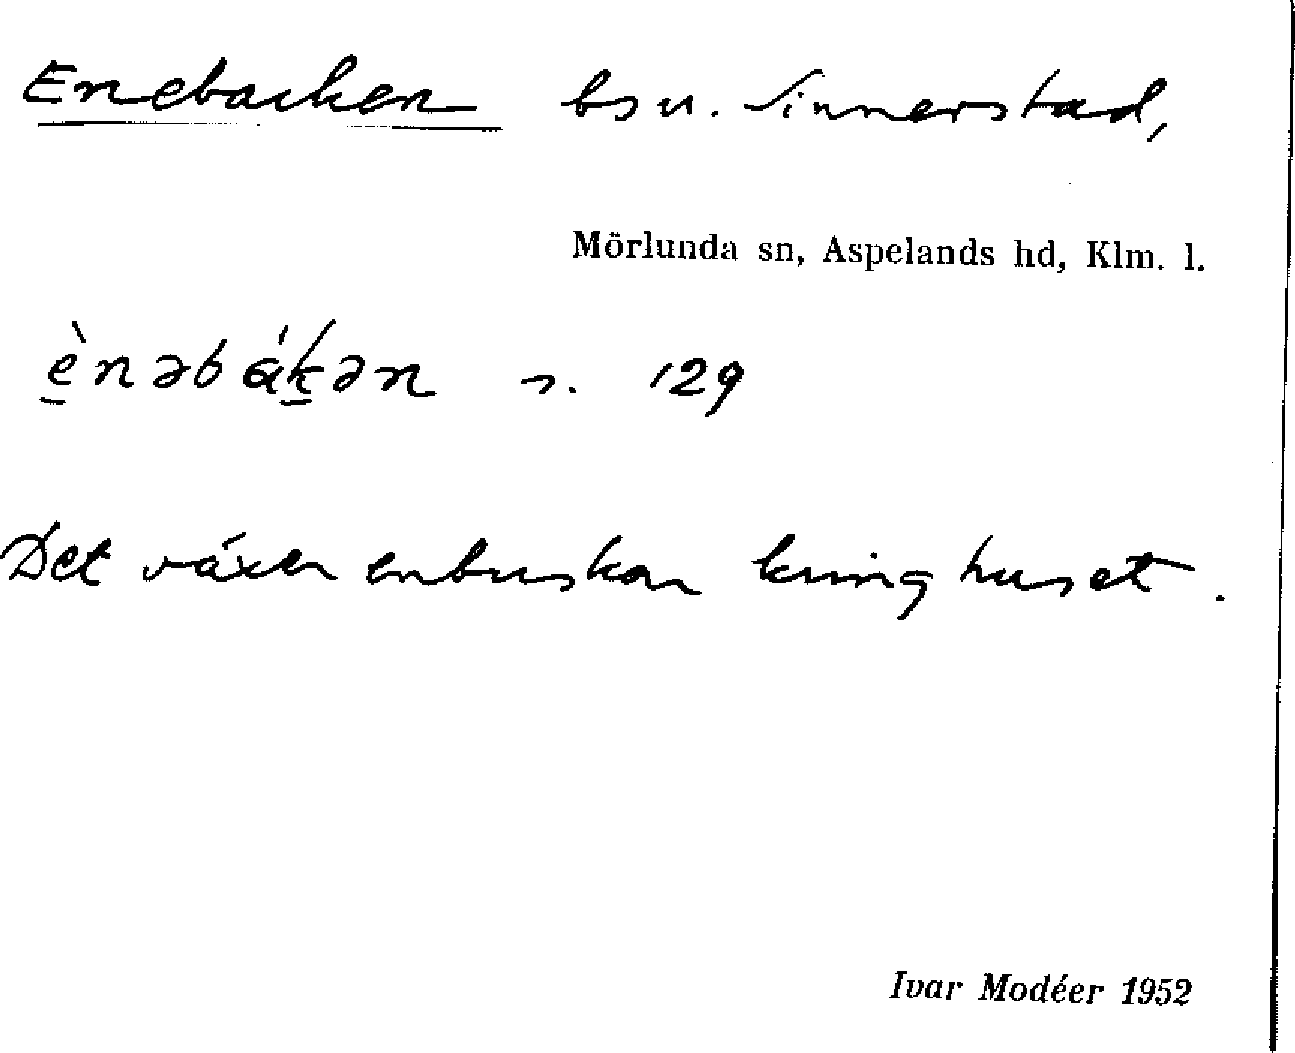 Enebacken bs u. Sinnerstad,
Mörlunda sn, Aspelands hd, Klm. l.
ènəbákən s. 129
Det växer enbuskar kring huset.
Ivar Modéer 1952